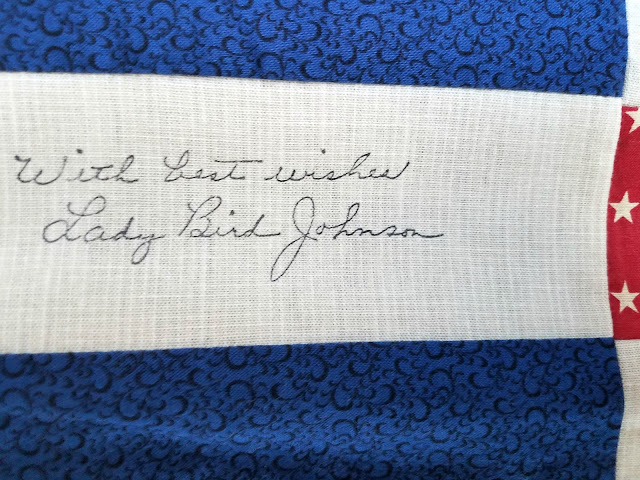 With best wishes
Lady Bird Johnson